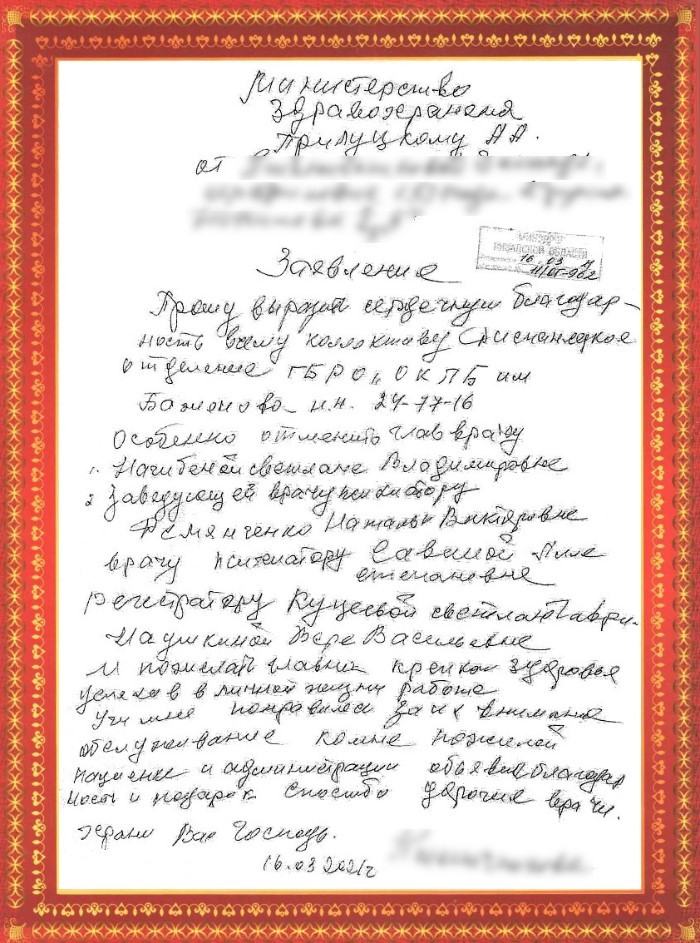 Министерство
Здравоохранения
Прилуцкому А А.
от
МИНЗДРАВ
РЯЗАНСКОЙ ОБЛАСТИ
16 03
Заявление
Прошу выразит сердечную благодар-
ность всему
отделение ГБРО „ОКПБ им
Баженова Н.Н. 24-77-16
Особенно отменить глав врачу
1. Светлане Владимировне
2 Заведующей врачу психиатору
Демянченко Наталье Викторовне
врачу психиатору Савиной Алле
степановне
Регистратору Куцевой светлане
Наушкиной Вере Васильевне
И пожелать крепкого здоровья
успехов в личной жизни работе
понравилось за их внимание
обслуживание комне пожилой
и администрации обьявив благодар
ность и подарок спосибо дорогие врачи.
храни Вас Господь.
16.03 2021г